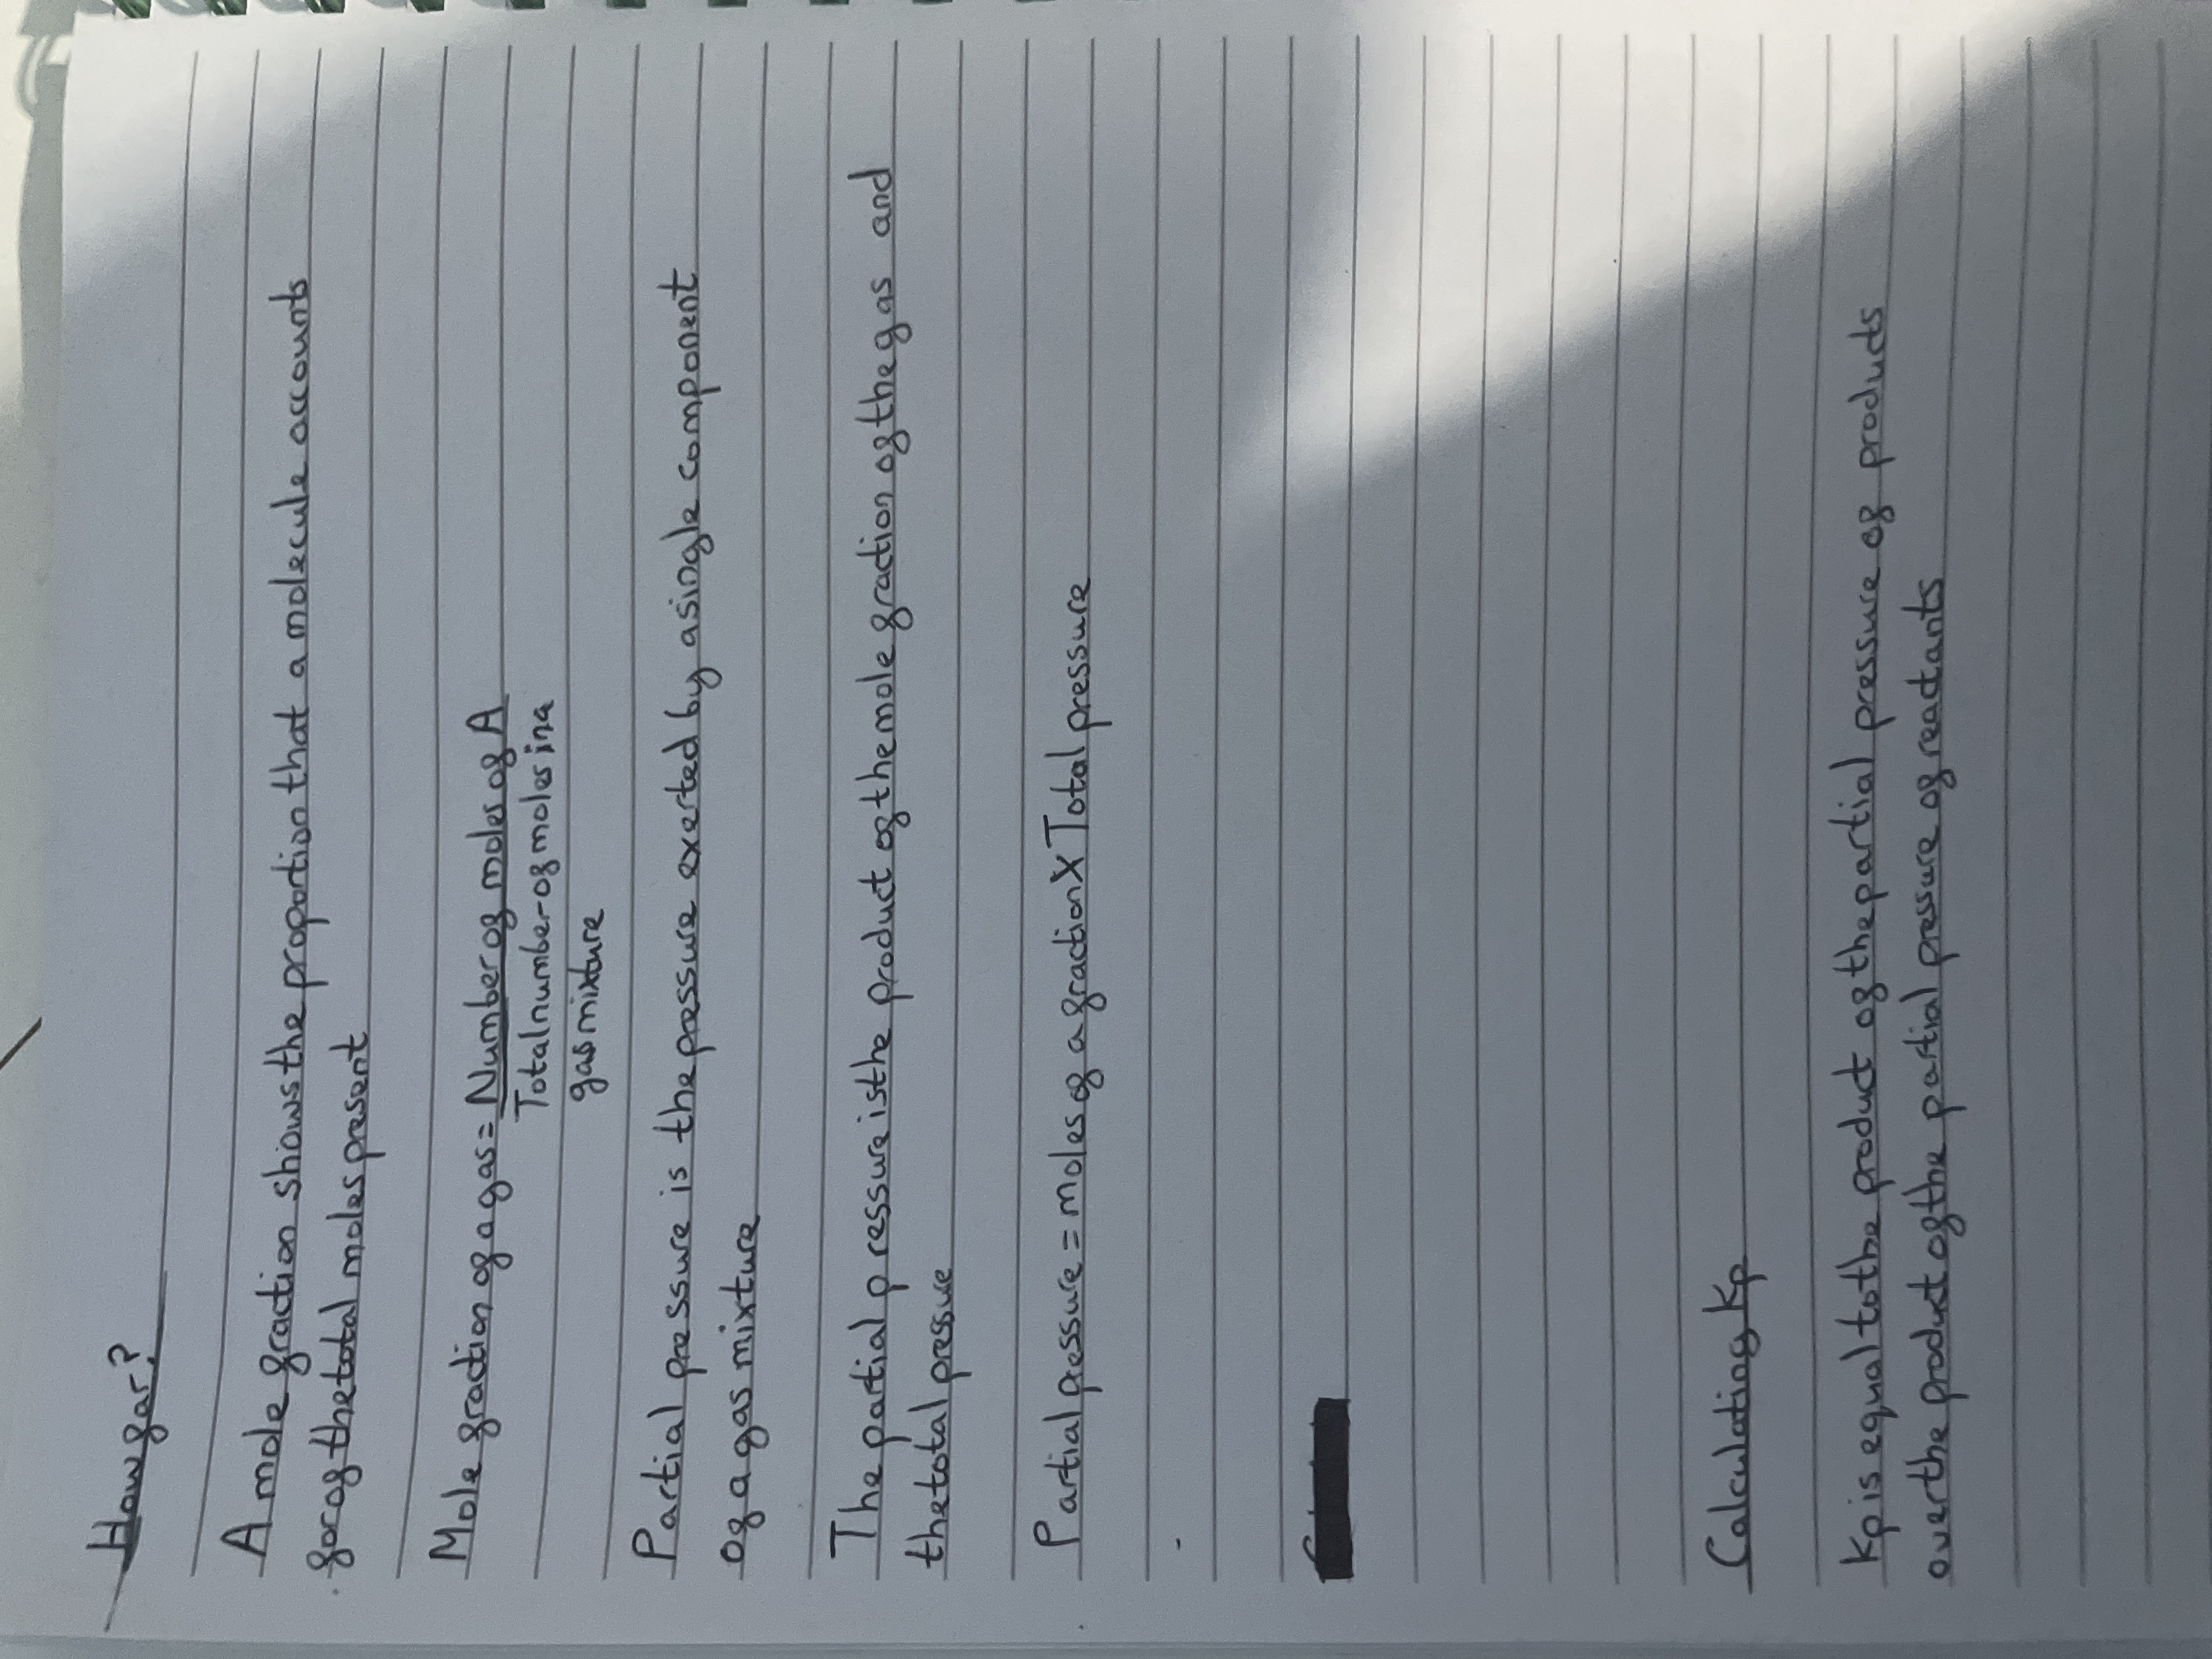 How far?
A mole fraction shows the proportion that a molecule accounts
for of the total moles present
Mole fraction of a gas = Number of moles of A
Total number of moles in a
gas mixture
Partial pressure is the pressure exerted by a single component
of a gas mixture
The partial pressure is the product of the mole fraction of the gas and
the total pressure
Partial pressure = moles of a fraction X Total pressure
Calculating Kp
Kp is equal to the product of the partial pressure of products
over the product of the partial pressure of reactants